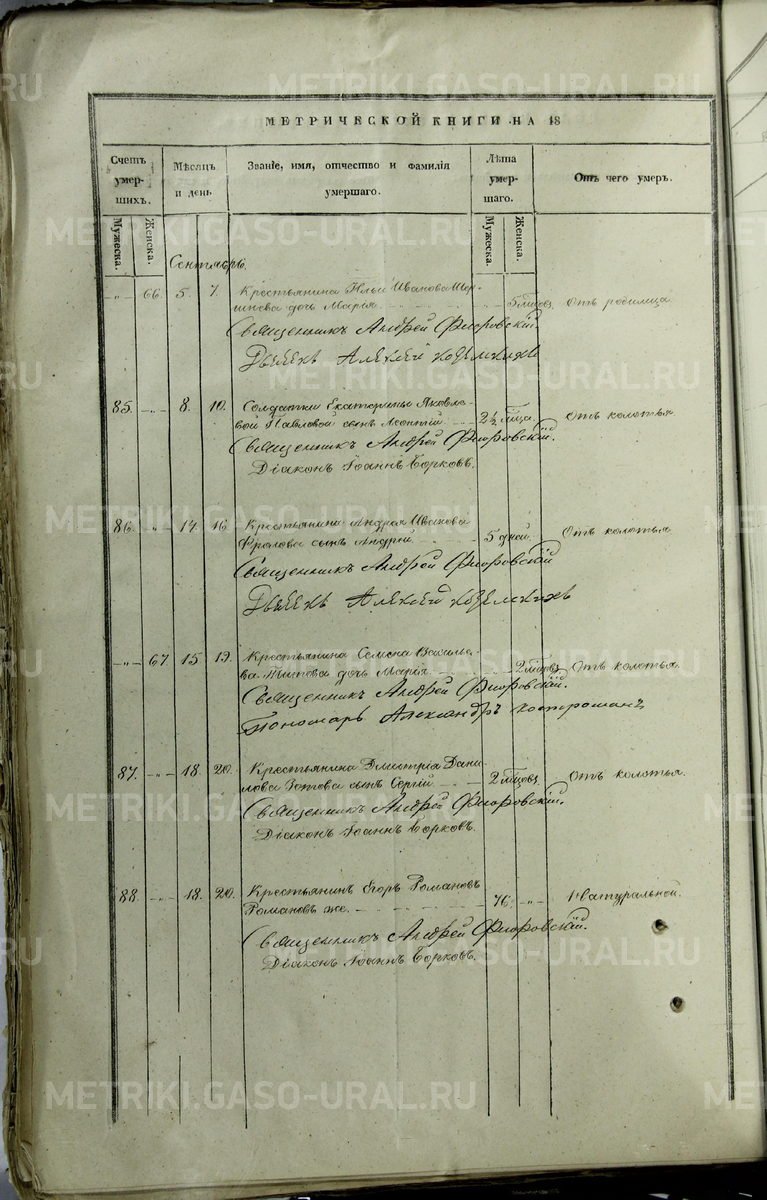 МЕТРИЧЕСКОЙ КНИГИ НА 18
Счетъ умер-шихъ.
Мѣсяцъ и день
Званіе, имя, отчество и фамилія умершаго.
Лѣта умер-шаго.
Отъ чего умеръ.
Мужеска.
Женска.
Мужеска.
Женска.
Сентябрь.
-"- 66. 5. 7. Крестьянина Ильи Иванова
дочь Марія 5 мцовъ Отъ родимца
Священникъ Андрей Флоровскій.
Дьячекъ Алексей
85. -"- 8. 10. Солдатки Екатерины Яковле-
вой Павловой сынъ Леонтій 2½ мца. Отъ колотья
Священникъ Андрей Флоровскій.
Діаконъ Іоаннъ Борковъ.
86. -"- 14. 16. Крестьянина Андрея Иванова
Фролова сынъ Андрей 5 дней. Отъ колотья
Священникъ Андрей Флоровскій
Дьячекъ Алексей
-"- 67. 15. 19. Крестьянина Семена Василье-
ва Титова дочь Марія 2 мцовъ Отъ колотья
Священникъ Андрей Флоровскій.
Пономарь Александръ
87. -"- 18. 20. Крестьянина Дмитрія Дани-
лова сынъ Сергій 2 мцовъ Отъ колотья.
Священникъ Андрей Флоровскій.
Діаконъ Іоаннъ Борковъ.
88. -"- 18. 20. Крестьянинъ Егоръ Романовъ
Романовъ же. 76. -"- Натуральной.
Священникъ Андрей Флоровскій.
Діаконъ Іоаннъ Борковъ.
METRIKI.GASO-URAL.RU